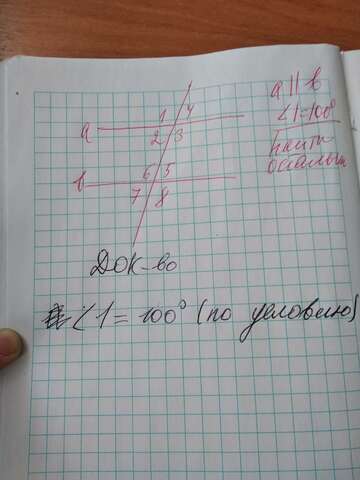 a || b
∠1=100°
Найти
остальн
a 1 4
2 3
b 6 5
7 8
Док-во
∠1 = 100° (по условию)